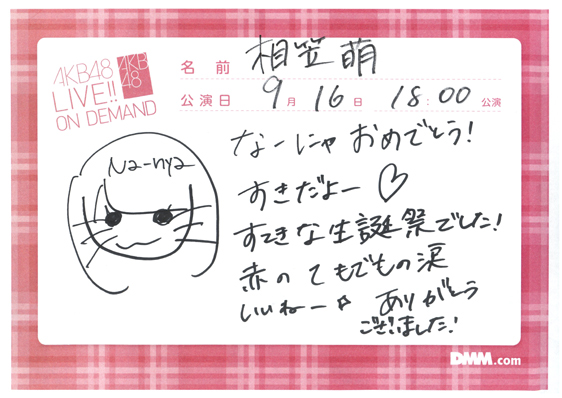 AKB48
LIVE!!
ON DEMAND
AKB
48
名前 相笠萌
公演日 9月16日 18:00公演
Na-nya
なーにゃ おめでとう!
すきだよー♡
すてきな生誕祭でした!
赤のてもでもの涙
いいねー☆ ありがとう
ございました!
DMM.com